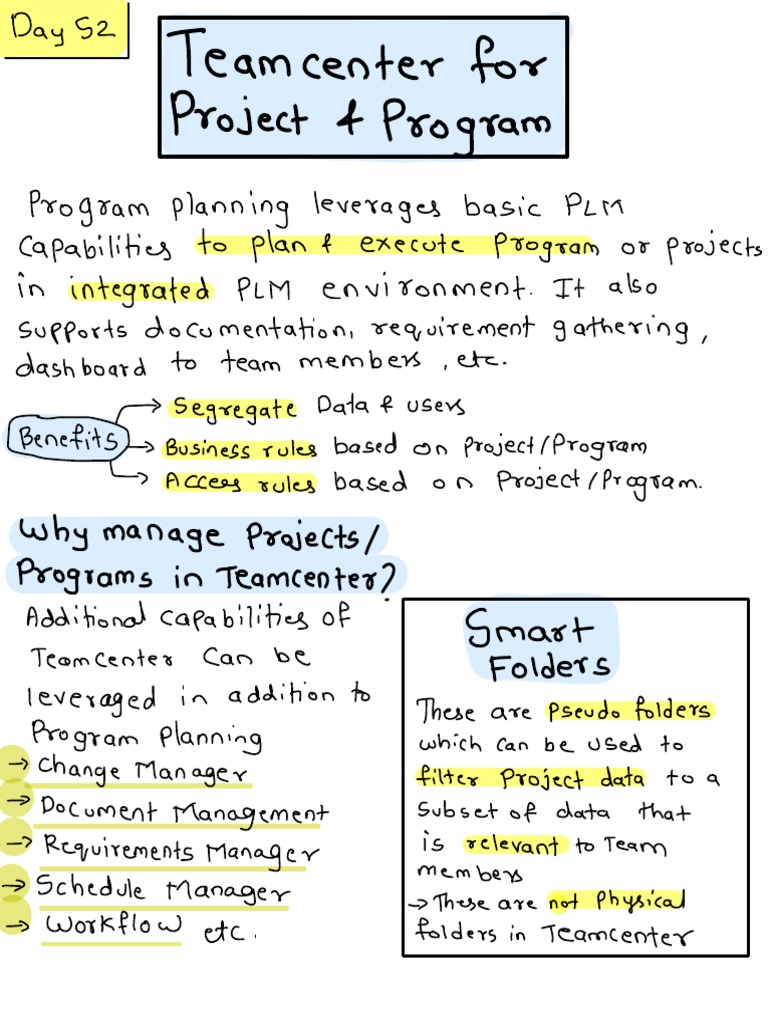 Day 52
Teamcenter for
Project & Program
Program planning leverages basic PLM
capabilities to plan & execute Program or projects
in integrated PLM environment. It also
supports documentation, requirement gathering,
dashboard to team members, etc.
Benefits
→ Segregate Data & users
→ Business rules based on Project/Program
→ Access rules based on Project/Program.
Why manage Projects/
Programs in Teamcenter?
Additional capabilities of
Teamcenter can be
leveraged in addition to
Program Planning
→ Change Manager
→ Document Management
→ Requirements Manager
→ Schedule Manager
→ Workflow etc.
Smart
Folders
These are pseudo folders
which can be used to
filter Project data to a
subset of data that
is relevant to Team
members
→ These are not Physical
folders in Teamcenter